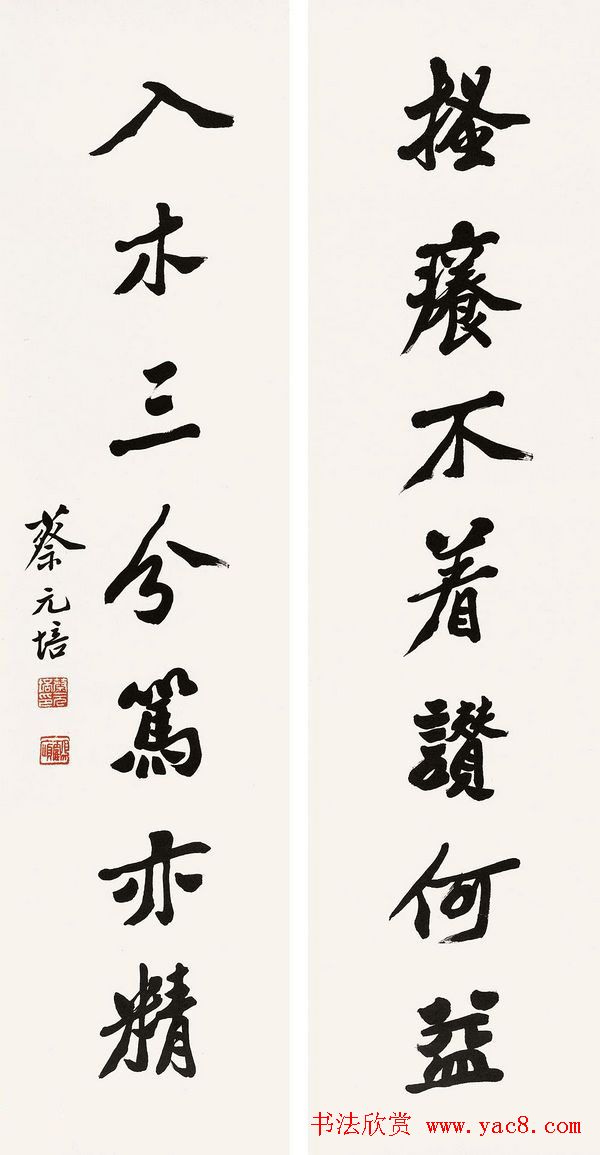 搔癢不着讚何益
入木三分駡亦精
蔡元培
蔡元培印
书法欣赏 www.yac8.com